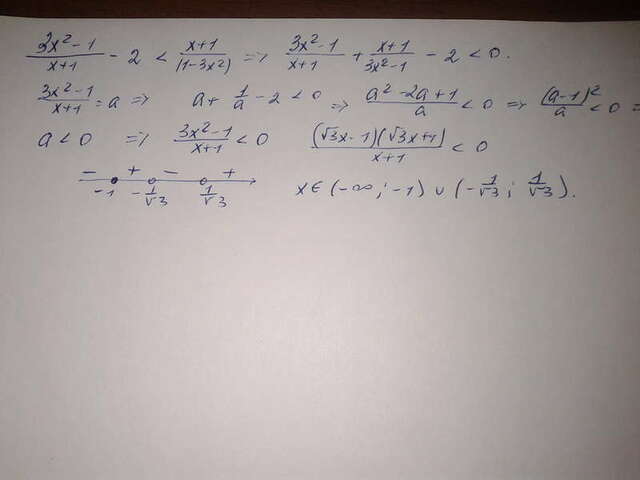 (3x²-1)/(x+1) - 2 < (x+1)/(1-3x²) => (3x²-1)/(x+1) + (x+1)/(3x²-1) - 2 < 0.
(3x²-1)/(x+1) = a => a + 1/a - 2 < 0 => (a²-2a+1)/a < 0 => (a-1)²/a < 0 =
a < 0 => (3x²-1)/(x+1) < 0 ((√3x-1)(√3x+1))/(x+1) < 0
- + - +
-1 -1/√3 1/√3 x ∈ (-∞; -1) ∪ (-1/√3; 1/√3).